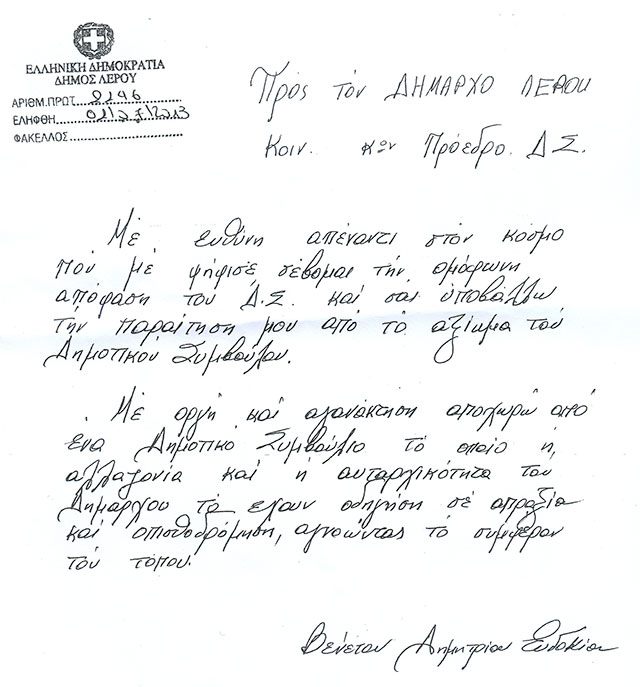 ΕΛΛΗΝΙΚΗ ΔΗΜΟΚΡΑΤΙΑ
ΔΗΜΟΣ ΛΕΡΟΥ
ΑΡΙΘΜ.ΠΡΩΤ. 8246
ΕΛΗΦΘΗ 01/27/2013
ΦΑΚΕΛΛΟΣ
Πρός τόν ΔΗΜΑΡΧΟ ΛΕΡΟΥ
Κοιν. κων Πρόεδρο. Δ.Σ.
Μέ ευθύνη απέναντι στόν κόσμο
πού μέ ψήφισε, σέβομαι τήν ομόφωνη
απόφαση του Δ.Σ. και σας υποβάλλω
τήν παραίτηση μου από τό αξίωμα τού
Δημοτικού Συμβούλου.
Μέ οργή και αγανάκτηση αποχωρώ από
ένα Δημοτικό Συμβούλιο τό οποίο ή
αλλαζονία και ή αυταρχικότητα του
Δημάρχου τό έχουν οδηγήση σέ απραξία
και οπισθοδρόμηση, αγνοώντας τό συμφέρον
τού τόπου.
Βενέτου Δημητρίου Ευδοκία